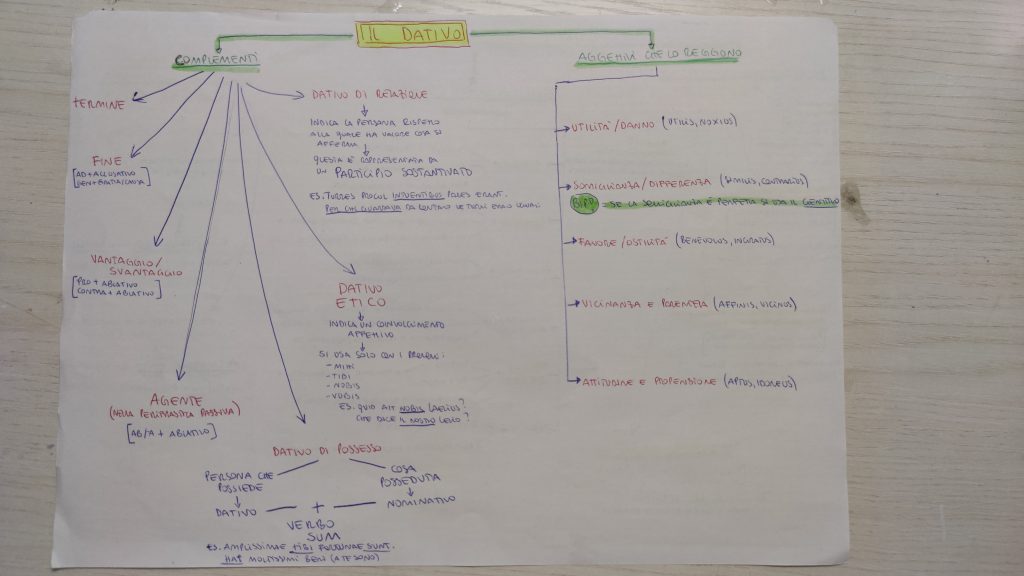 IL DATIVO
COMPLEMENTI
TERMINE
FINE
[AD + ACCUSATIVO
GEN + GRATIA/CAUSA]
VANTAGGIO/
SVANTAGGIO
[PRO + ABLATIVO
CONTRA + ABLATIVO]
AGENTE
(NELLA PERIFRASTICA PASSIVA)
[AB/A + ABLATIVO]
DATIVO DI POSSESSO
PERSONA CHE
POSSIEDE
DATIVO
+
VERBO
SUM
COSA
POSSEDUTA
NOMINATIVO
ES. AMPLISSIMAE TIBI FORTUNAE SUNT.
HAI MOLTISSIMI BENI (A TE SONO)
DATIVO ETICO
INDICA UN COINVOLGIMENTO
AFFETTIVO
SI USA SOLO CON I PRONOMI:
- MIHI
- TIBI
- NOBIS
- VOBIS
ES. QUID AIT NOBIS LAELIUS?
CHE DICE IL NOSTRO LELIO?
DATIVO DI RELAZIONE
INDICA LA PERSONA RISPETTO
ALLA QUALE HA VALORE COSA SI
AFFERMA
QUESTA È RAPPRESENTATA DA
UN PARTICIPIO SOSTANTIVATO
ES. TURRES PROCUL INTUENTIBUS PARES ERANT.
PER CHI GUARDAVA DA LONTANO LE TORRI ERANO UGUALI
AGGETTIVI CHE LO REGGONO
UTILITÀ/DANNO (UTILIS, NOXIUS)
SOMIGLIANZA/DIFFERENZA (SIMILIS, CONTRARIUS)
SE LA SOMIGLIANZA È PERFETTA SI USA IL GENITIVO
FAVORE/OSTILITÀ (BENEVOLUS, INGRATUS)
VICINANZA E PARENTELA (AFFINIS, VICINUS)
ATTITUDINE E PROPENSIONE (APTUS, IDONEUS)